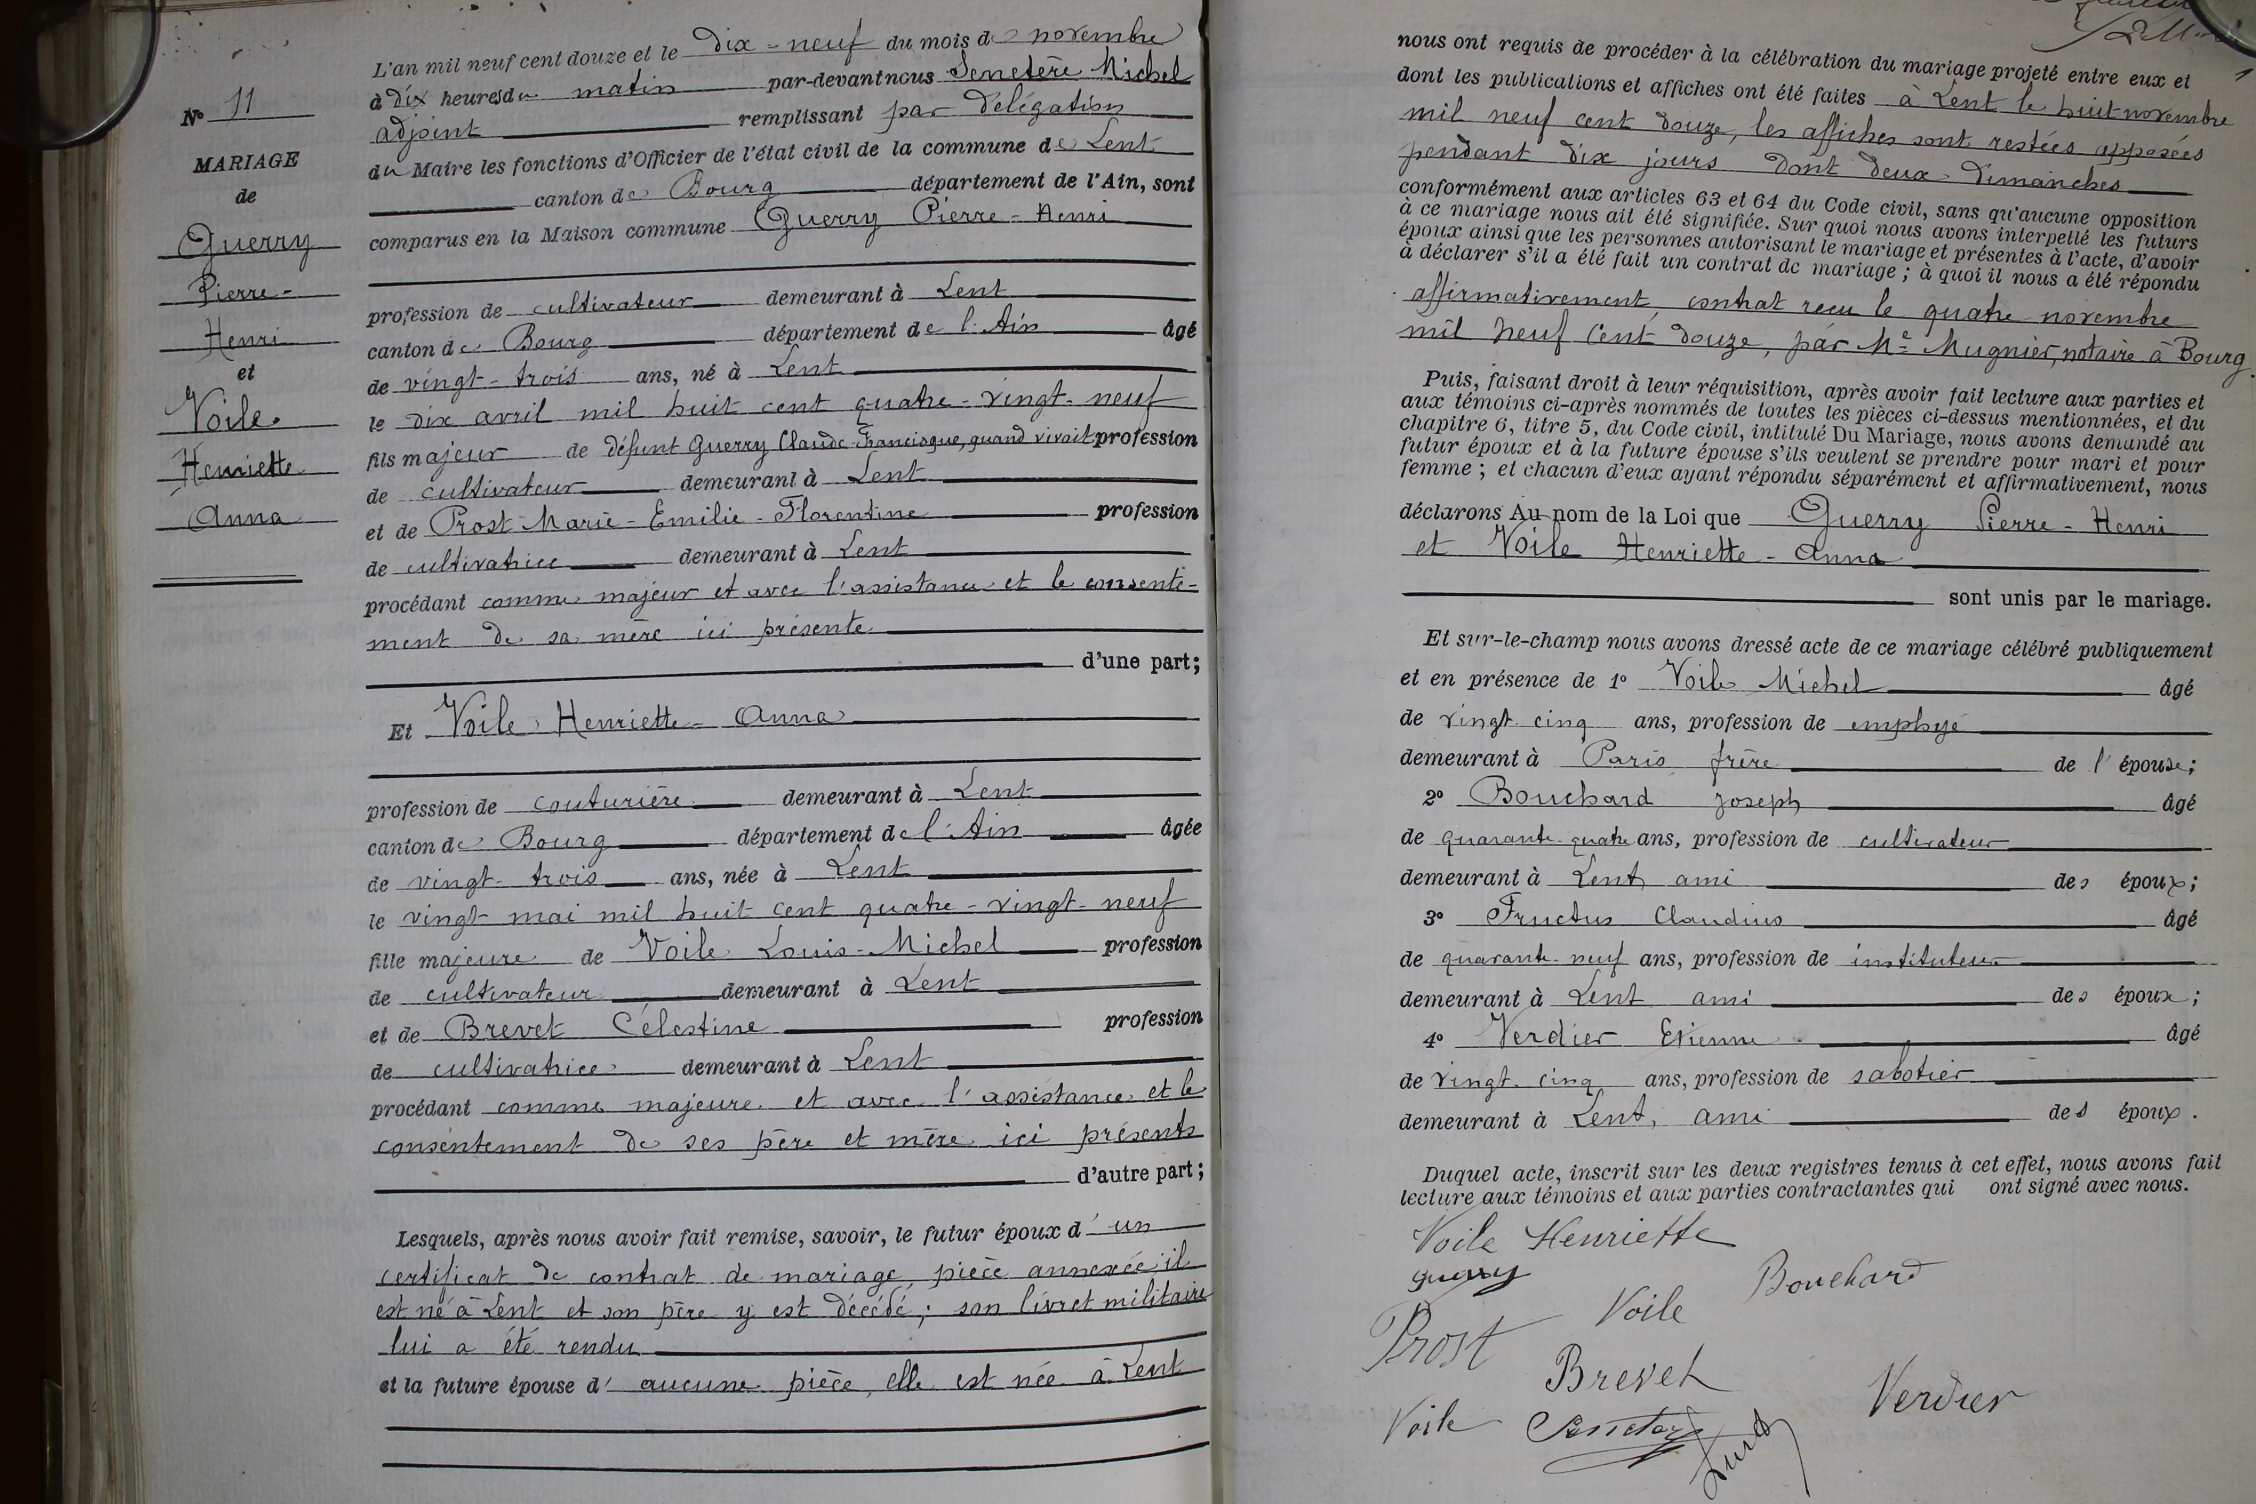 N° 11
MARIAGE
de
Guerry
Pierre-
Henri
et
Voile
Henriette
Anna
L'an mil neuf cent douze et le dix-neuf du mois de novembre
à dix heures du matin par-devant nous Senetère Michel
adjoint remplissant par délégation
du Maire les fonctions d'Officier de l'état civil de la commune de Lent
canton de Bourg département de l'Ain, sont
comparus en la Maison commune Guerry Pierre-Henri
profession de cultivateur demeurant à Lent
canton de Bourg département de l'Ain âgé
de vingt-trois ans, né à Lent
le dix avril mil huit cent quatre-vingt-neuf
fils majeur de défunt Guerry Claude-Francisque, quand vivait profession
de cultivateur demeurant à Lent
et de Prost Marie-Emilie-Florentine profession
de cultivatrice demeurant à Lent
procédant comme majeur et avec l'assistance et le consente-
ment de sa mère ici présente
d'une part;
Et Voile Henriette-Anna
profession de couturière demeurant à Lent
canton de Bourg département de l'Ain âgée
de vingt-trois ans, née à Lent
le vingt mai mil huit cent quatre-vingt-neuf
fille majeure de Voile Louis-Michel profession
de cultivateur demeurant à Lent
et de Brevet Célestine profession
de cultivatrice demeurant à Lent
procédant comme majeure et avec l'assistance et le
consentement de ses père et mère ici présents
d'autre part;
Lesquels, après nous avoir fait remise, savoir, le futur époux d'un
certificat de contrat de mariage, pièce annexée; il
est né à Lent et son père y est décédé; son livret militaire
lui a été rendu
et la future épouse d'aucune pièce, elle est née à Lent
nous ont requis de procéder à la célébration du mariage projeté entre eux et
dont les publications et affiches ont été faites à Lent le huit novembre
mil neuf cent douze, les affiches sont restées apposées
pendant dix jours dont deux dimanches
conformément aux articles 63 et 64 du Code civil, sans qu'aucune opposition
à ce mariage nous ait été signifiée. Sur quoi nous avons interpellé les futurs
époux ainsi que les personnes autorisant le mariage et présentes à l'acte, d'avoir
à déclarer s'il a été fait un contrat de mariage; à quoi il nous a été répondu
affirmativement, contrat reçu le quatre novembre
mil neuf cent douze, par Me Mugnier, notaire à Bourg.
Puis, faisant droit à leur réquisition, après avoir fait lecture aux parties et
aux témoins ci-après nommés de toutes les pièces ci-dessus mentionnées, et du
chapitre 6, titre 5, du Code civil, intitulé Du Mariage, nous avons demandé au
futur époux et à la future épouse s'ils veulent se prendre pour mari et pour
femme; et chacun d'eux ayant répondu séparément et affirmativement, nous
déclarons Au nom de la Loi que Guerry Pierre-Henri
et Voile Henriette-Anna
sont unis par le mariage.
Et sur-le-champ nous avons dressé acte de ce mariage célébré publiquement
et en présence de 1° Voile Michel âgé
de vingt cinq ans, profession de employé
demeurant à Paris, frère de l'épouse;
2° Bouchard Joseph âgé
de quarante-quatre ans, profession de cultivateur
demeurant à Lent, ami des époux;
3° Fructus Claudius âgé
de quarante-neuf ans, profession de instituteur
demeurant à Lent ami des époux;
4° Verdier Etienne âgé
de vingt-cinq ans, profession de sabotier
demeurant à Lent, ami des époux.
Duquel acte, inscrit sur les deux registres tenus à cet effet, nous avons fait
lecture aux témoins et aux parties contractantes qui ont signé avec nous.
Voile Henriette
Guerry
Bouchard
Voile
Prost
Brevet
Verdier
Voile